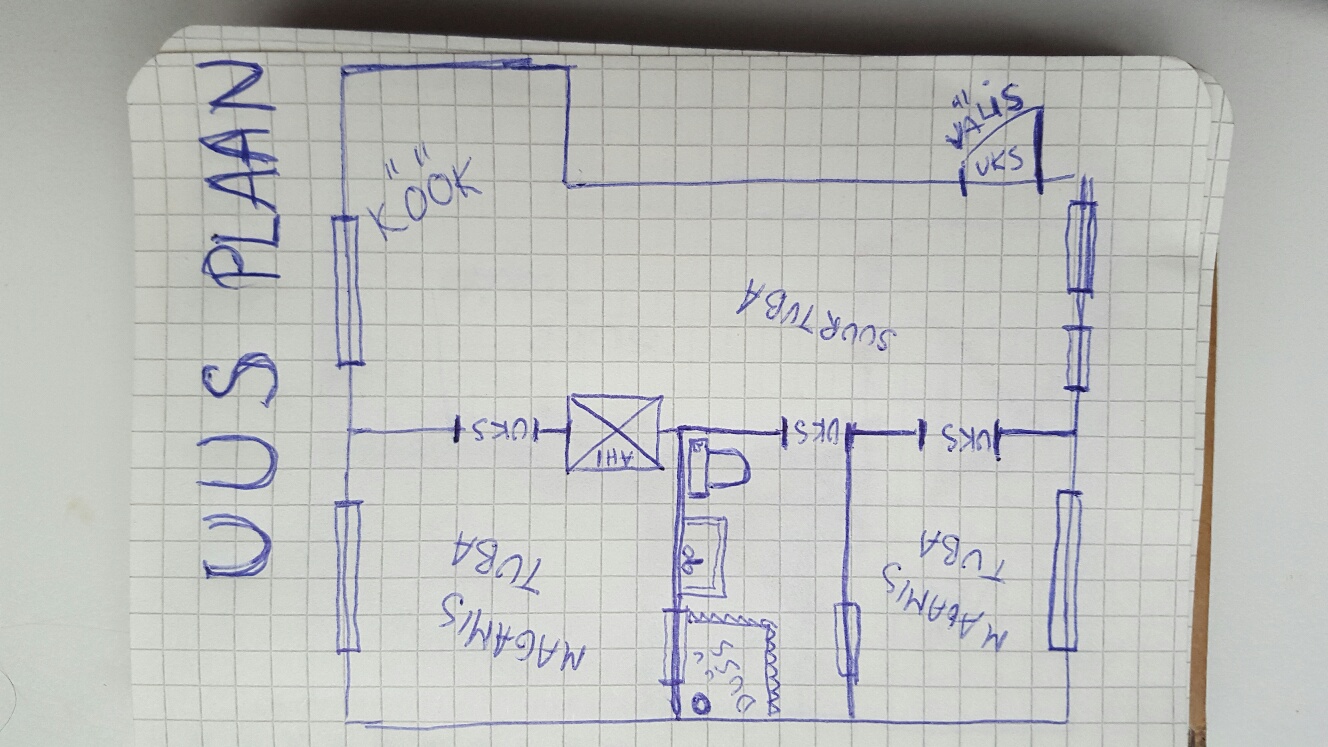 UUS PLAAN
KÖÖK
VÄLIS
UKS
SUUR TUBA
UKS
AHI
UKS
UKS
MAGAMIS
TUBA
MAGAMIS
TUBA